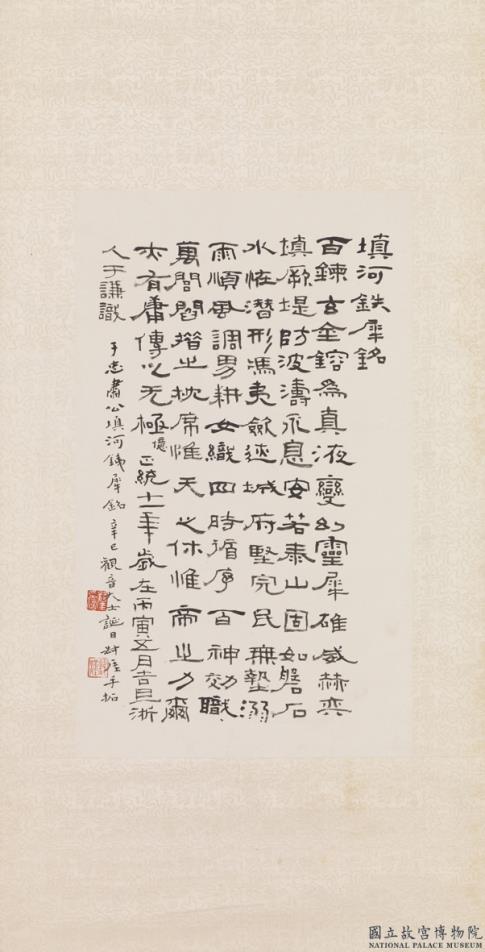 填河鉄犀銘
百鍊玄金鎔為真液變幻靈犀雄威赫奕
填厥堤防波濤永息安若泰山固如磐石
水恠潛形馮夷斂迹城府堅完民無墊溺
雨順風調男耕女織四時循序百神効職
萬閭閻措之枕席惟天之休惟帝之力爾
亦有庸傳以无極億正統十一年歲在丙寅五月吉旦浙
人于謙識
于忠肅公填河鐵犀銘辛巳觀音大士誕日手拓
國立故宮博物院
NATIONAL PALACE MUSEUM